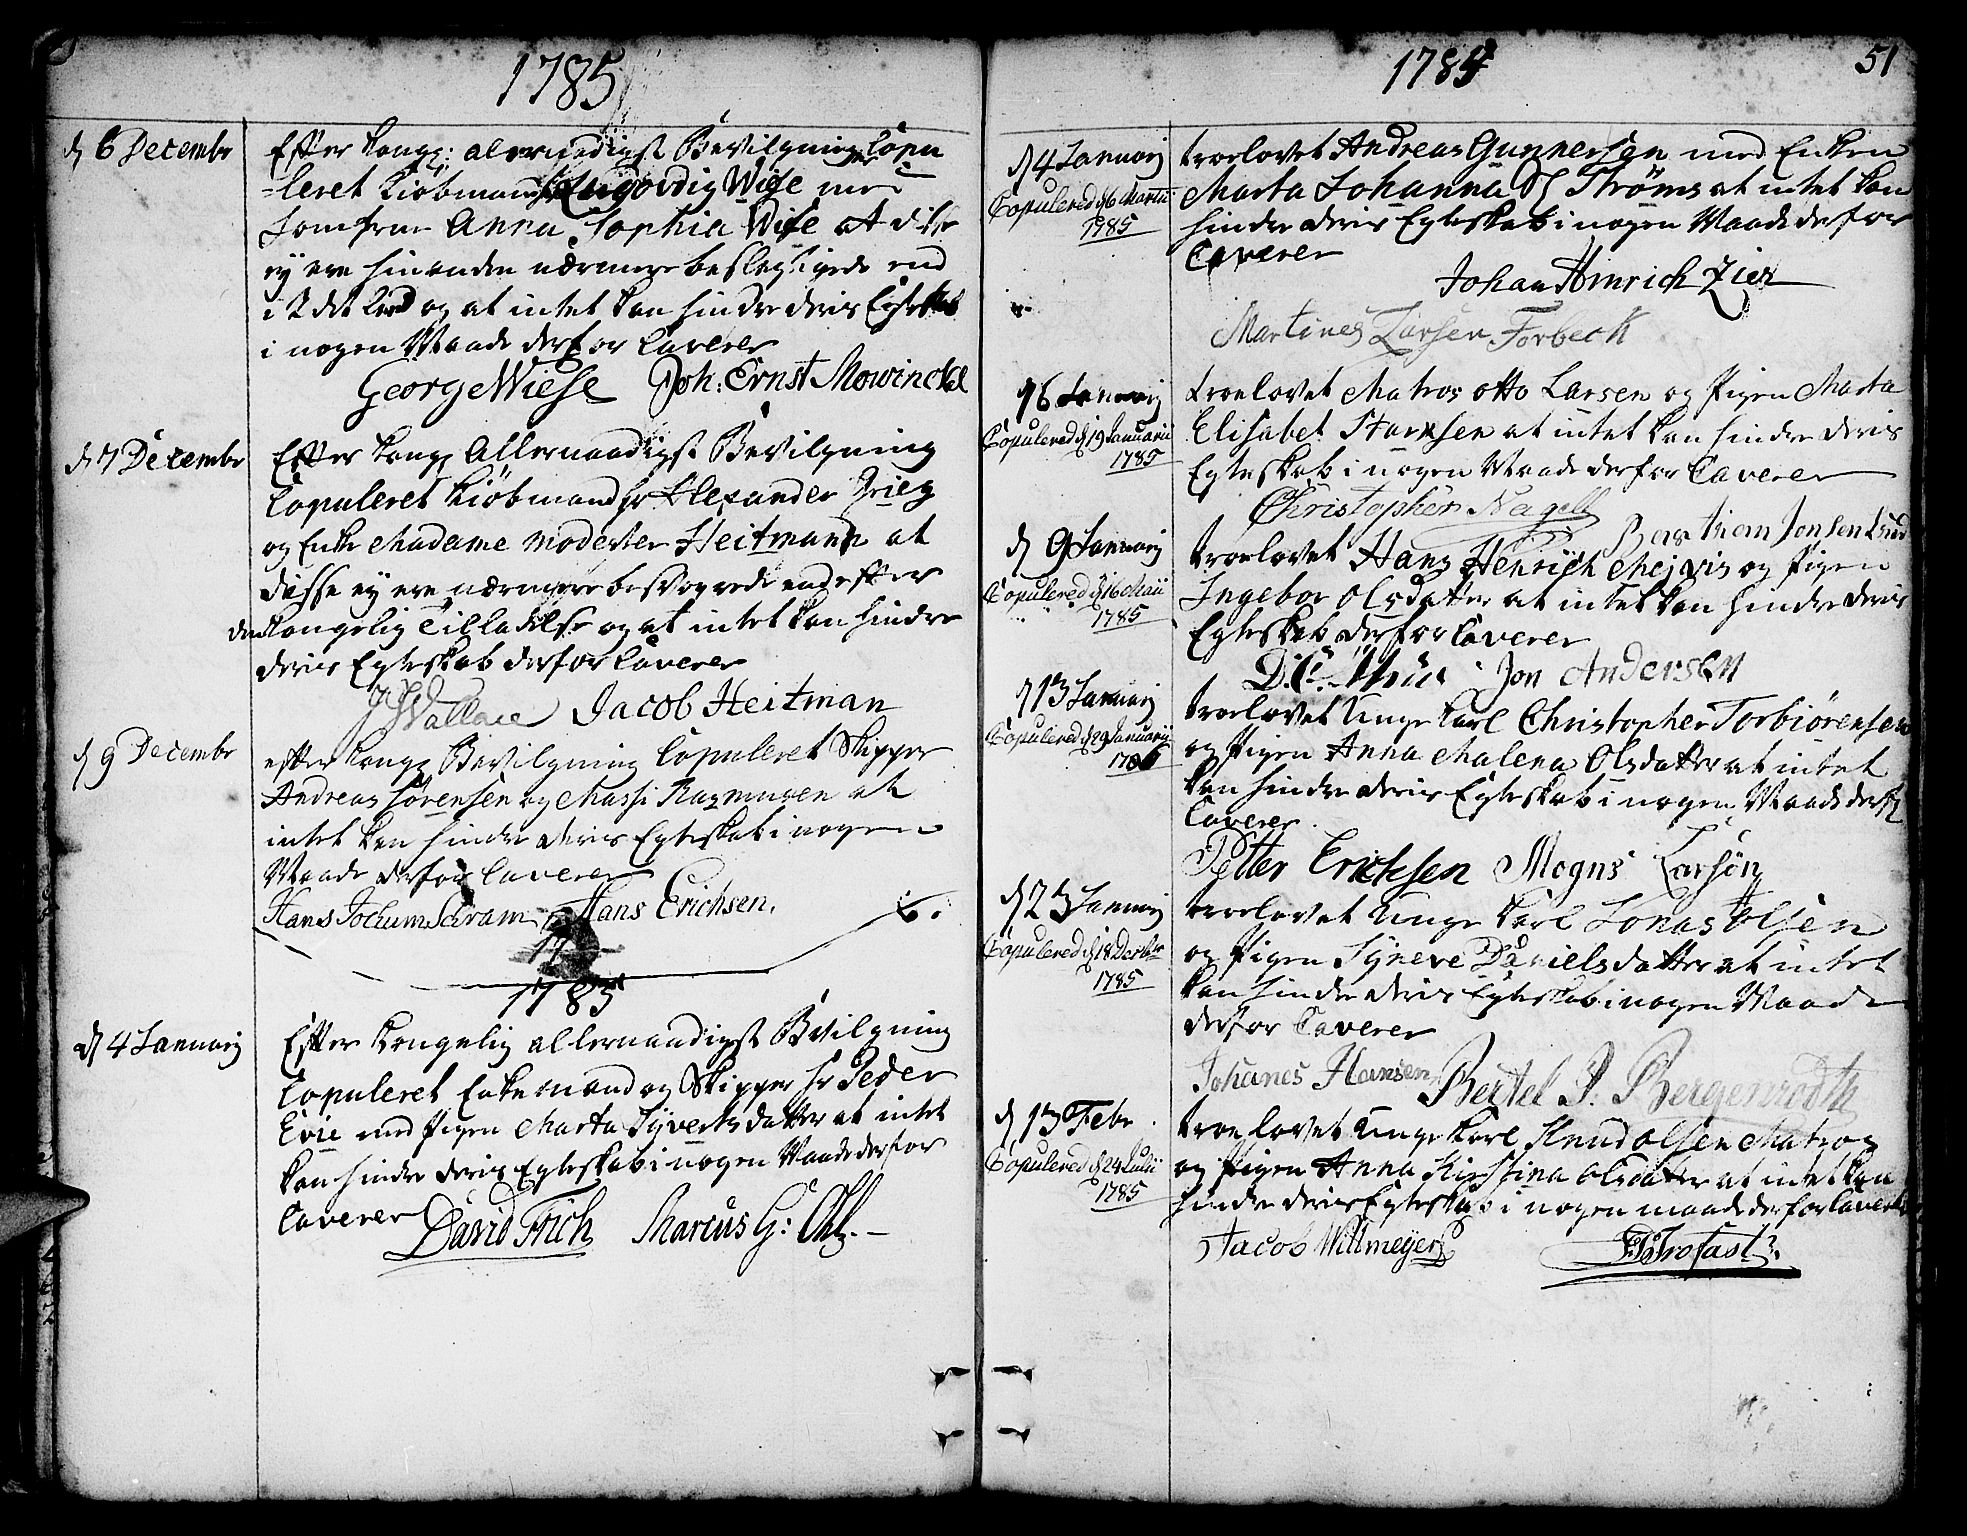 1785
d 6 Decembr
Efter Kongl: allernaadigst Bevilgning Copu
-leret Kiøbmand Hr Ludovig Wise med
Jomfrue Anna Sophia Wise at disse
ey ere hinanden nærmere beslegtigede end
i 2det Leed og at intet kan hindre deris Egteskab
i nogen Maade derfor Caverer
George Wiese Joh: Ernst Mowinckel
d 7 Decembr
Efter Kongl Allernaadigst Bevilgning
Copuleret Kiøbmand Hr Alexander Grieg
og Enke Madame Modester Heitmann at
disse ey ere nærmere besvogrede end efter
den Kongelig Tilladelse og at intet kan hindre
deris Egteskab derfor Caverer
J Wallace Jacob Heitman
d 9 Decembr
efter Kongl Bevilgning Copuleret Skipper
Andreas Sørensen og Massi Rasmusen at
intet kan hindre deris Egteskab i nogen
Maade derfor Caverer
Hans Jochum Schram Hans Erichsen.
17
1785
d 4 Januarij
Efter Kongelig allernaadigst Bevilgning
Copuleret Enkemand og Skipper Hr Peder
Evie med Pigen Marta Syvertsdatter at intet
kan hindre deris Egteskab i nogen Maade derfor
Caverer
David Frich Marcus G:
1785
51
d 4 Januarij
Copulered d 16 Martii
1785
troelovet Andreas Gunnersen med Enken
Marta Johanna Strøms at intet kan
hindre deris Egteskab i nogen Maade derfor
Caverer
Johan Hinrich Zier
Martines Larsen Forbech
d 6 Januarij
Copulered d 19 Januarii
1785
troelovet Matros Otto Larsen og Pigen Marta
Elisabet at intet kan hindre deris
Egteskab i nogen Maade derfor Caverer
Christopher Nagell
Jonsen Lund
d 9 Januarij
Copulered d 16 Maii
1785
troelovet Hans Henrich Mejvis og Pigen
Ingebor Olsdatter at intet kan hindre deris
Egteskab derfor Caverer
Jon Andersen
d 13 Januarij
Copulered d 29 Januarij
1786
troelovet Unge Karl Christopher Torbiørensen
og Pigen Anna Malena Olsdatter at intet
kan hindre deris Egteskab i nogen Maade derf
Caverer
Petter Ericksen Mogns Larsøn
d 23 Januarij
Copulered d 18 Decbr
1785
troelovet Unge Karl Jonas Olsen
og Pigen Syneve Danielsdatter at intet
kan hindre deris Egteskab i nogen Maade
derfor Caverer
Johanes Hansen Bertel J. Bergenrodth
d 13 Febr
Copulered d 24 Julii
1785
troelovet Unge Karl Knud Olsen Matros
og Pigen Anna Kirstina Olsdatter at intet kan
hindre deris Egteskab i nogen maade derfor Caverer
Jacob Willmeyer Trofast